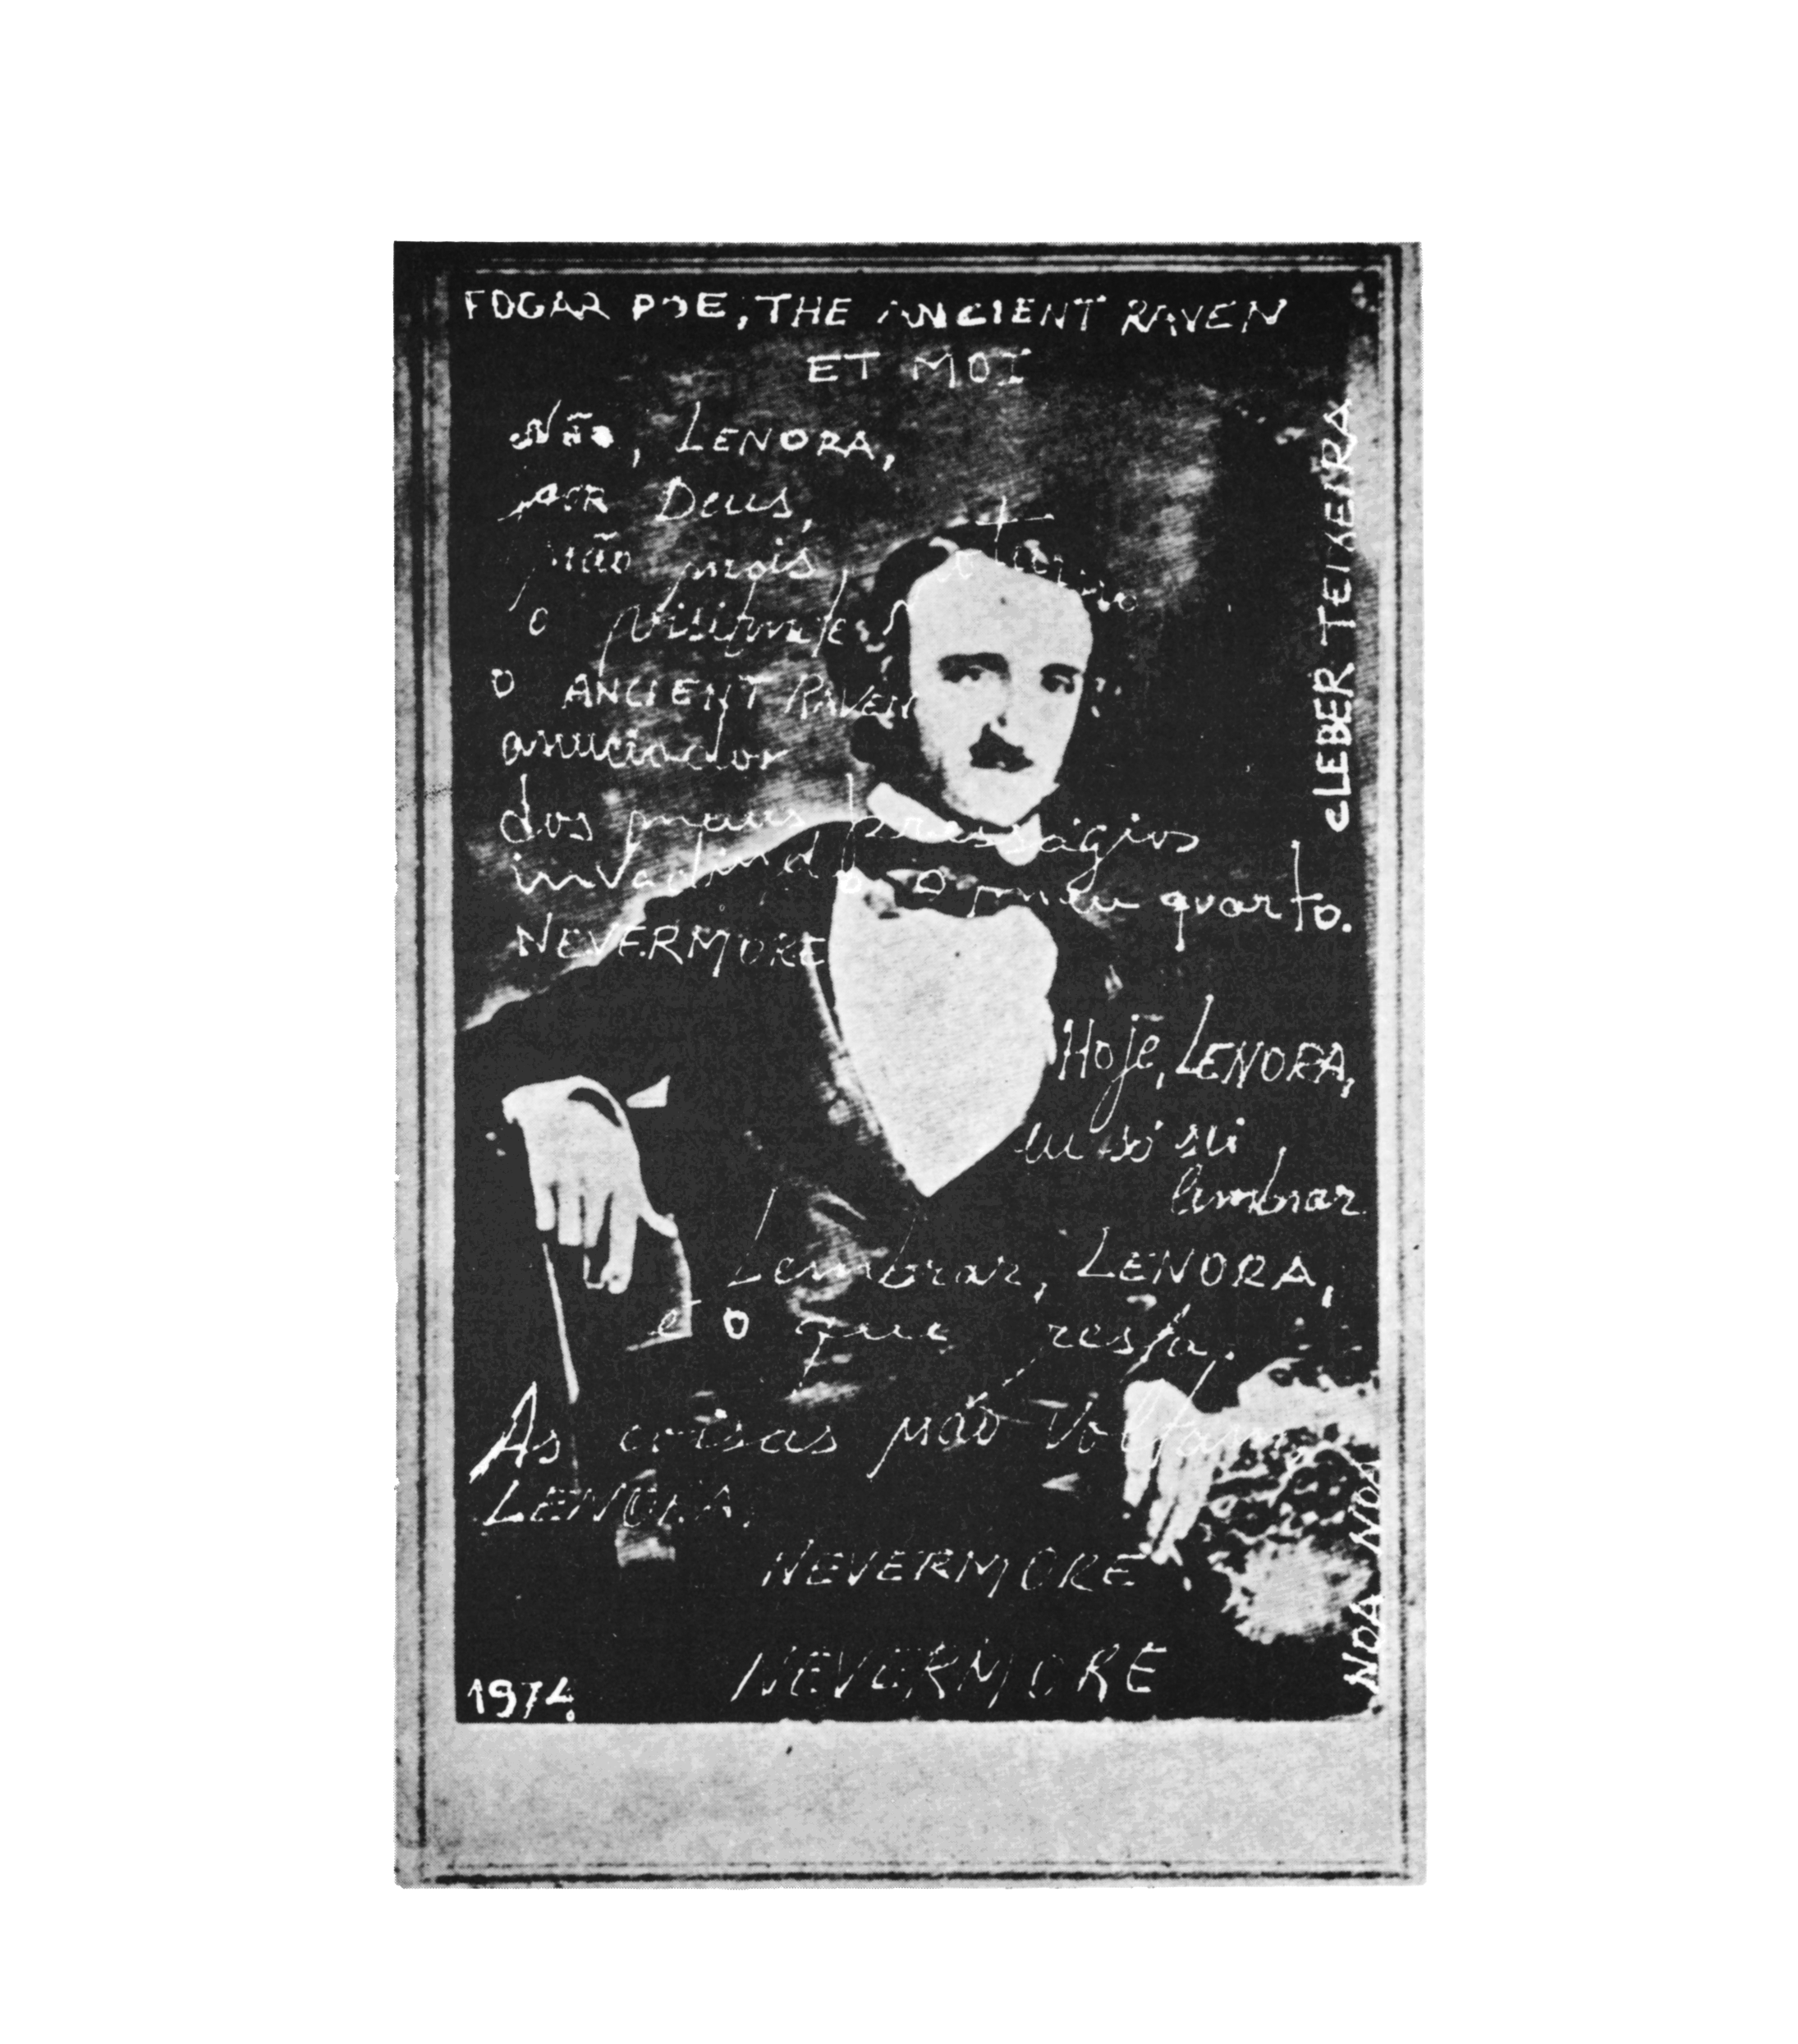 EDGAR POE, THE ANCIENT RAVEN
ET MOI
Não, LENORA,
POR Deus,
não mais, o torvo
o visitante
o ANCIENT RAVEN
anunciador
dos maus presságios
invadindo o meu quarto.
NEVERMORE
Hoje, LENORA,
eu só sei
lembrar
Lembrar, LENORA,
é o que resta.
As coisas não voltam,
LENORA.
NEVERMORE
NEVERMORE
1974
CLEBER TEIXEIRA
NOA NOA